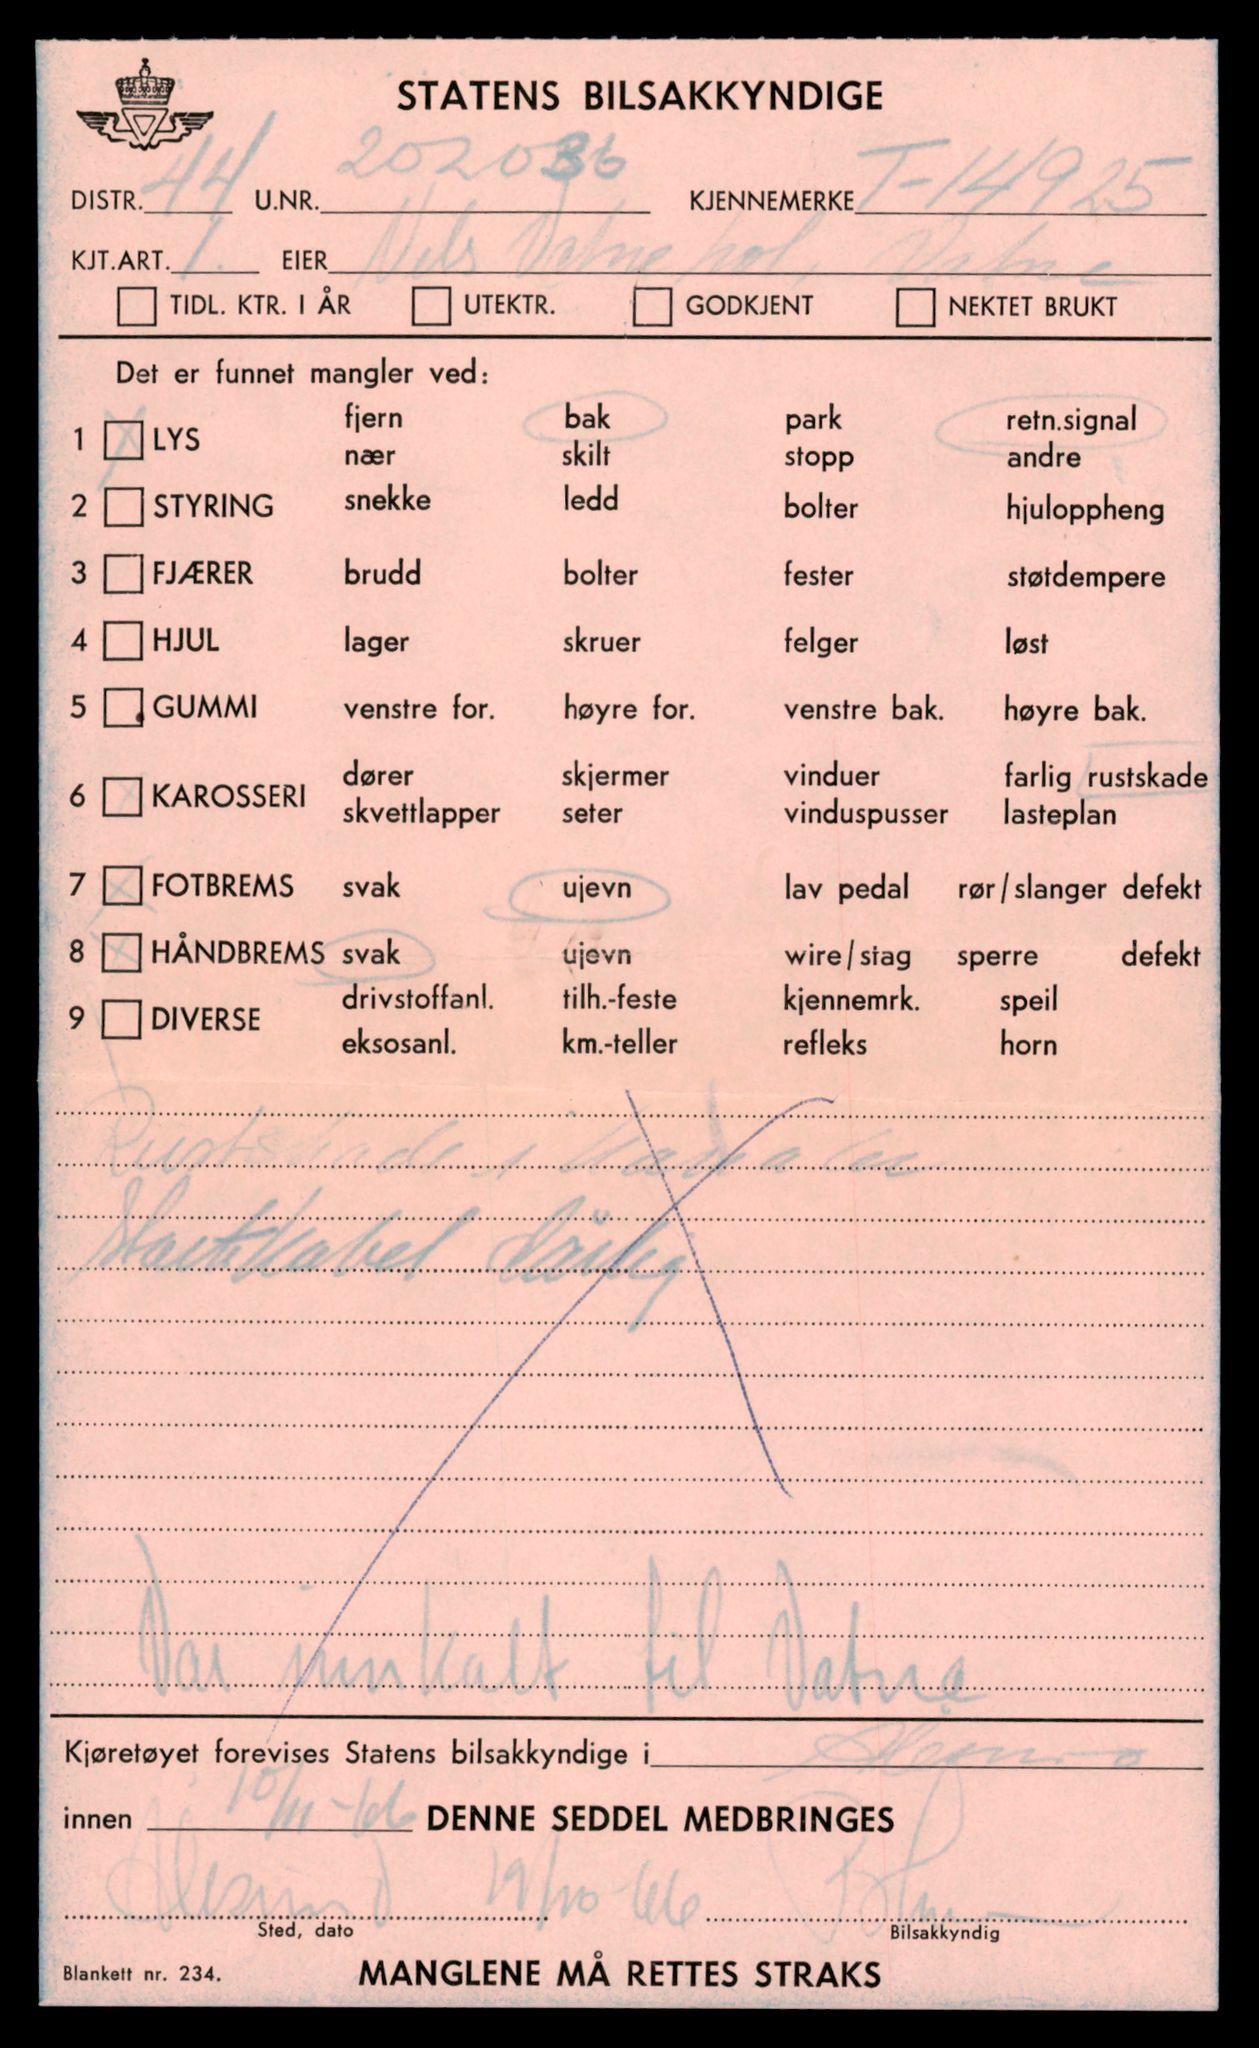 STATENS BILSAKKYNDIGE
DISTR. 44 U.NR. 202036 KJENNEMERKE T-14925
KJT.ART. 1. EIER Nils Vatne pol. Vatne
TIDL. KTR. I ÅR UTEKTR. GODKJENT NEKTET BRUKT
Det er funnet mangler ved:
fjern bak park retn.signal
1 LYS
nær skilt stopp andre
2 STYRING snekke ledd bolter hjuloppheng
3 FJÆRER brudd bolter fester støtdempere
4 HJUL lager skruer felger løst
5 GUMMI venstre for. høyre for. venstre bak. høyre bak.
dører skjermer vinduer farlig rustskade
6 KAROSSERI
skvettlapper seter vinduspusser lasteplan
7 FOTBREMS svak ujevn lav pedal rør/slanger defekt
8 HÅNDBREMS svak ujevn wire/stag sperre defekt
drivstoffanl. tilh.-feste kjennemrk. speil
9 DIVERSE
eksosanl. km.-teller refleks horn
Rustskade i kanaler
Startkabel dårlig
Var innkalt til Vatne
Kjøretøyet forevises Statens bilsakkyndige i Ålesund
innen 10/11-66 DENNE SEDDEL MEDBRINGES
Ålesund 19/10-66
Sted, dato Bilsakkyndig
Blankett nr. 234. MANGLENE MÅ RETTES STRAKS